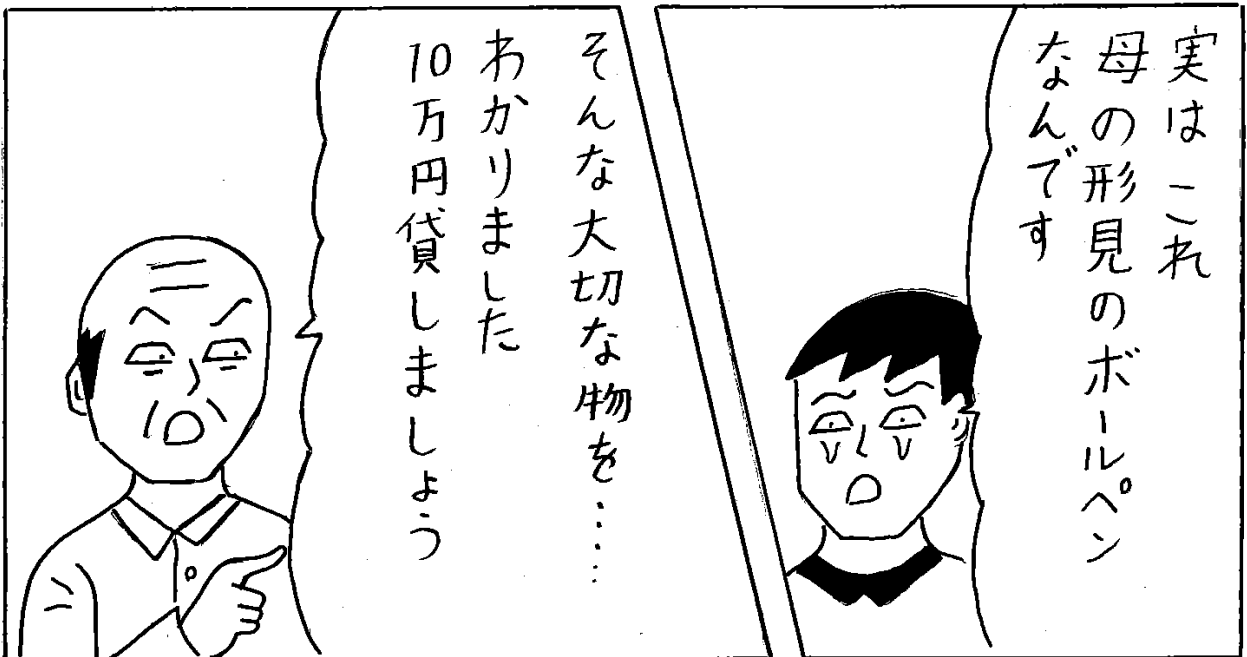 実はこれ
母の形見のボールペン
なんです
そんな大切な物を.....
わかりました
10万円貸しましょう